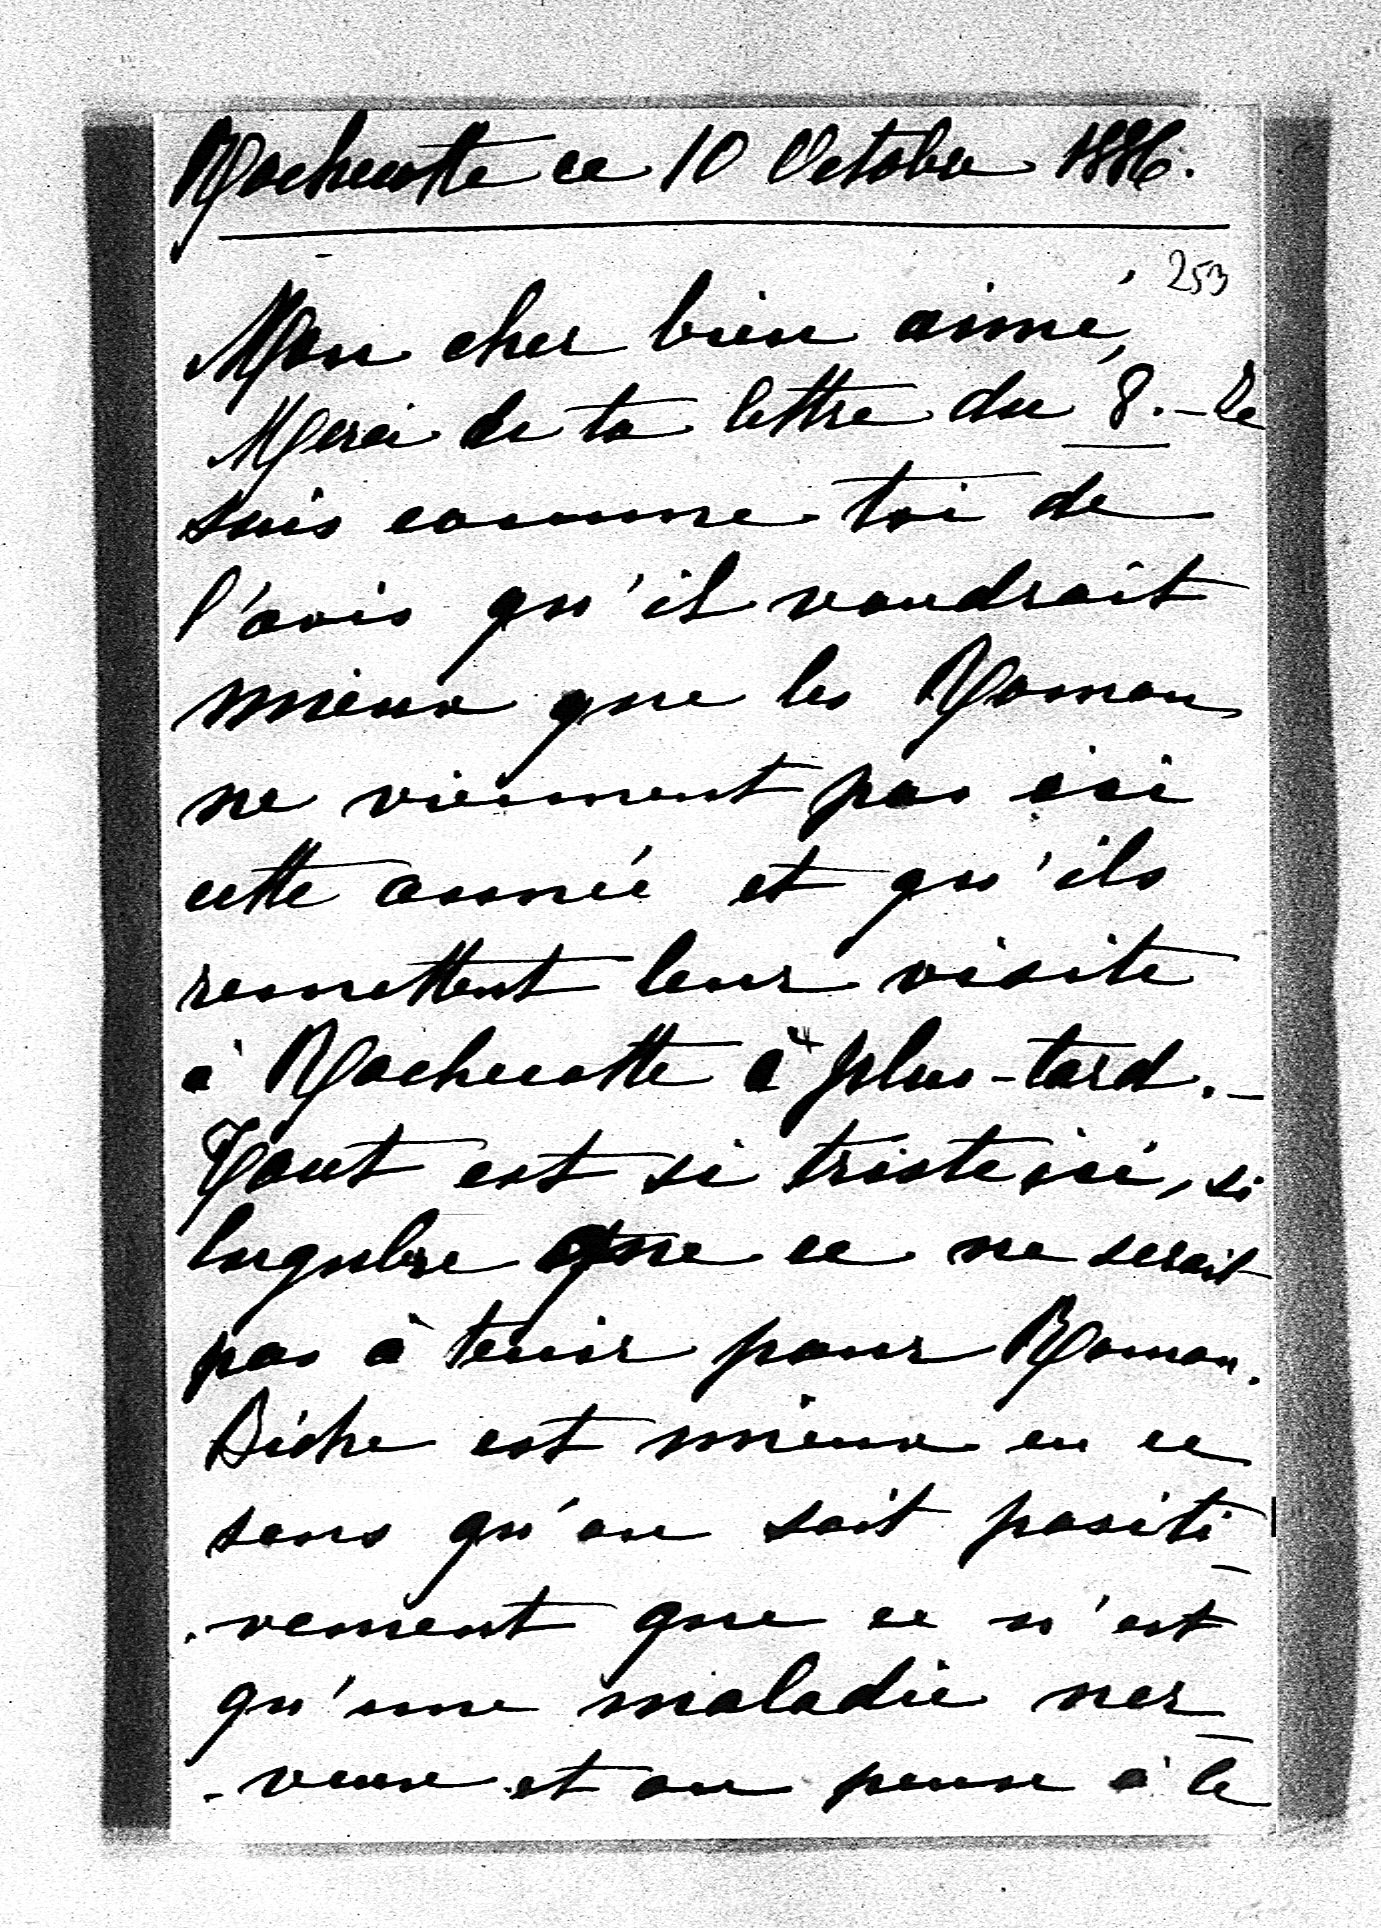 Rochecotte ce 10 Octobre 1886.
253
Mon cher bien aimé,
Merci de ta lettre du 8. – Je
suis comme toi de
l'avis qu'il vaudrait
mieux que les Roman
ne viennent pas ici
cette année et qu'ils
remettent leur visite
à Rochecotte à plus-tard. –
Tout est si triste ici, si
lugubre que ce ne serait
pas à tenir pour Roman.
Biche est mieux en ce
sens qu'on sait positi-
-vement que ce n'est
qu'une maladie ner-
-veuse et on pense à le